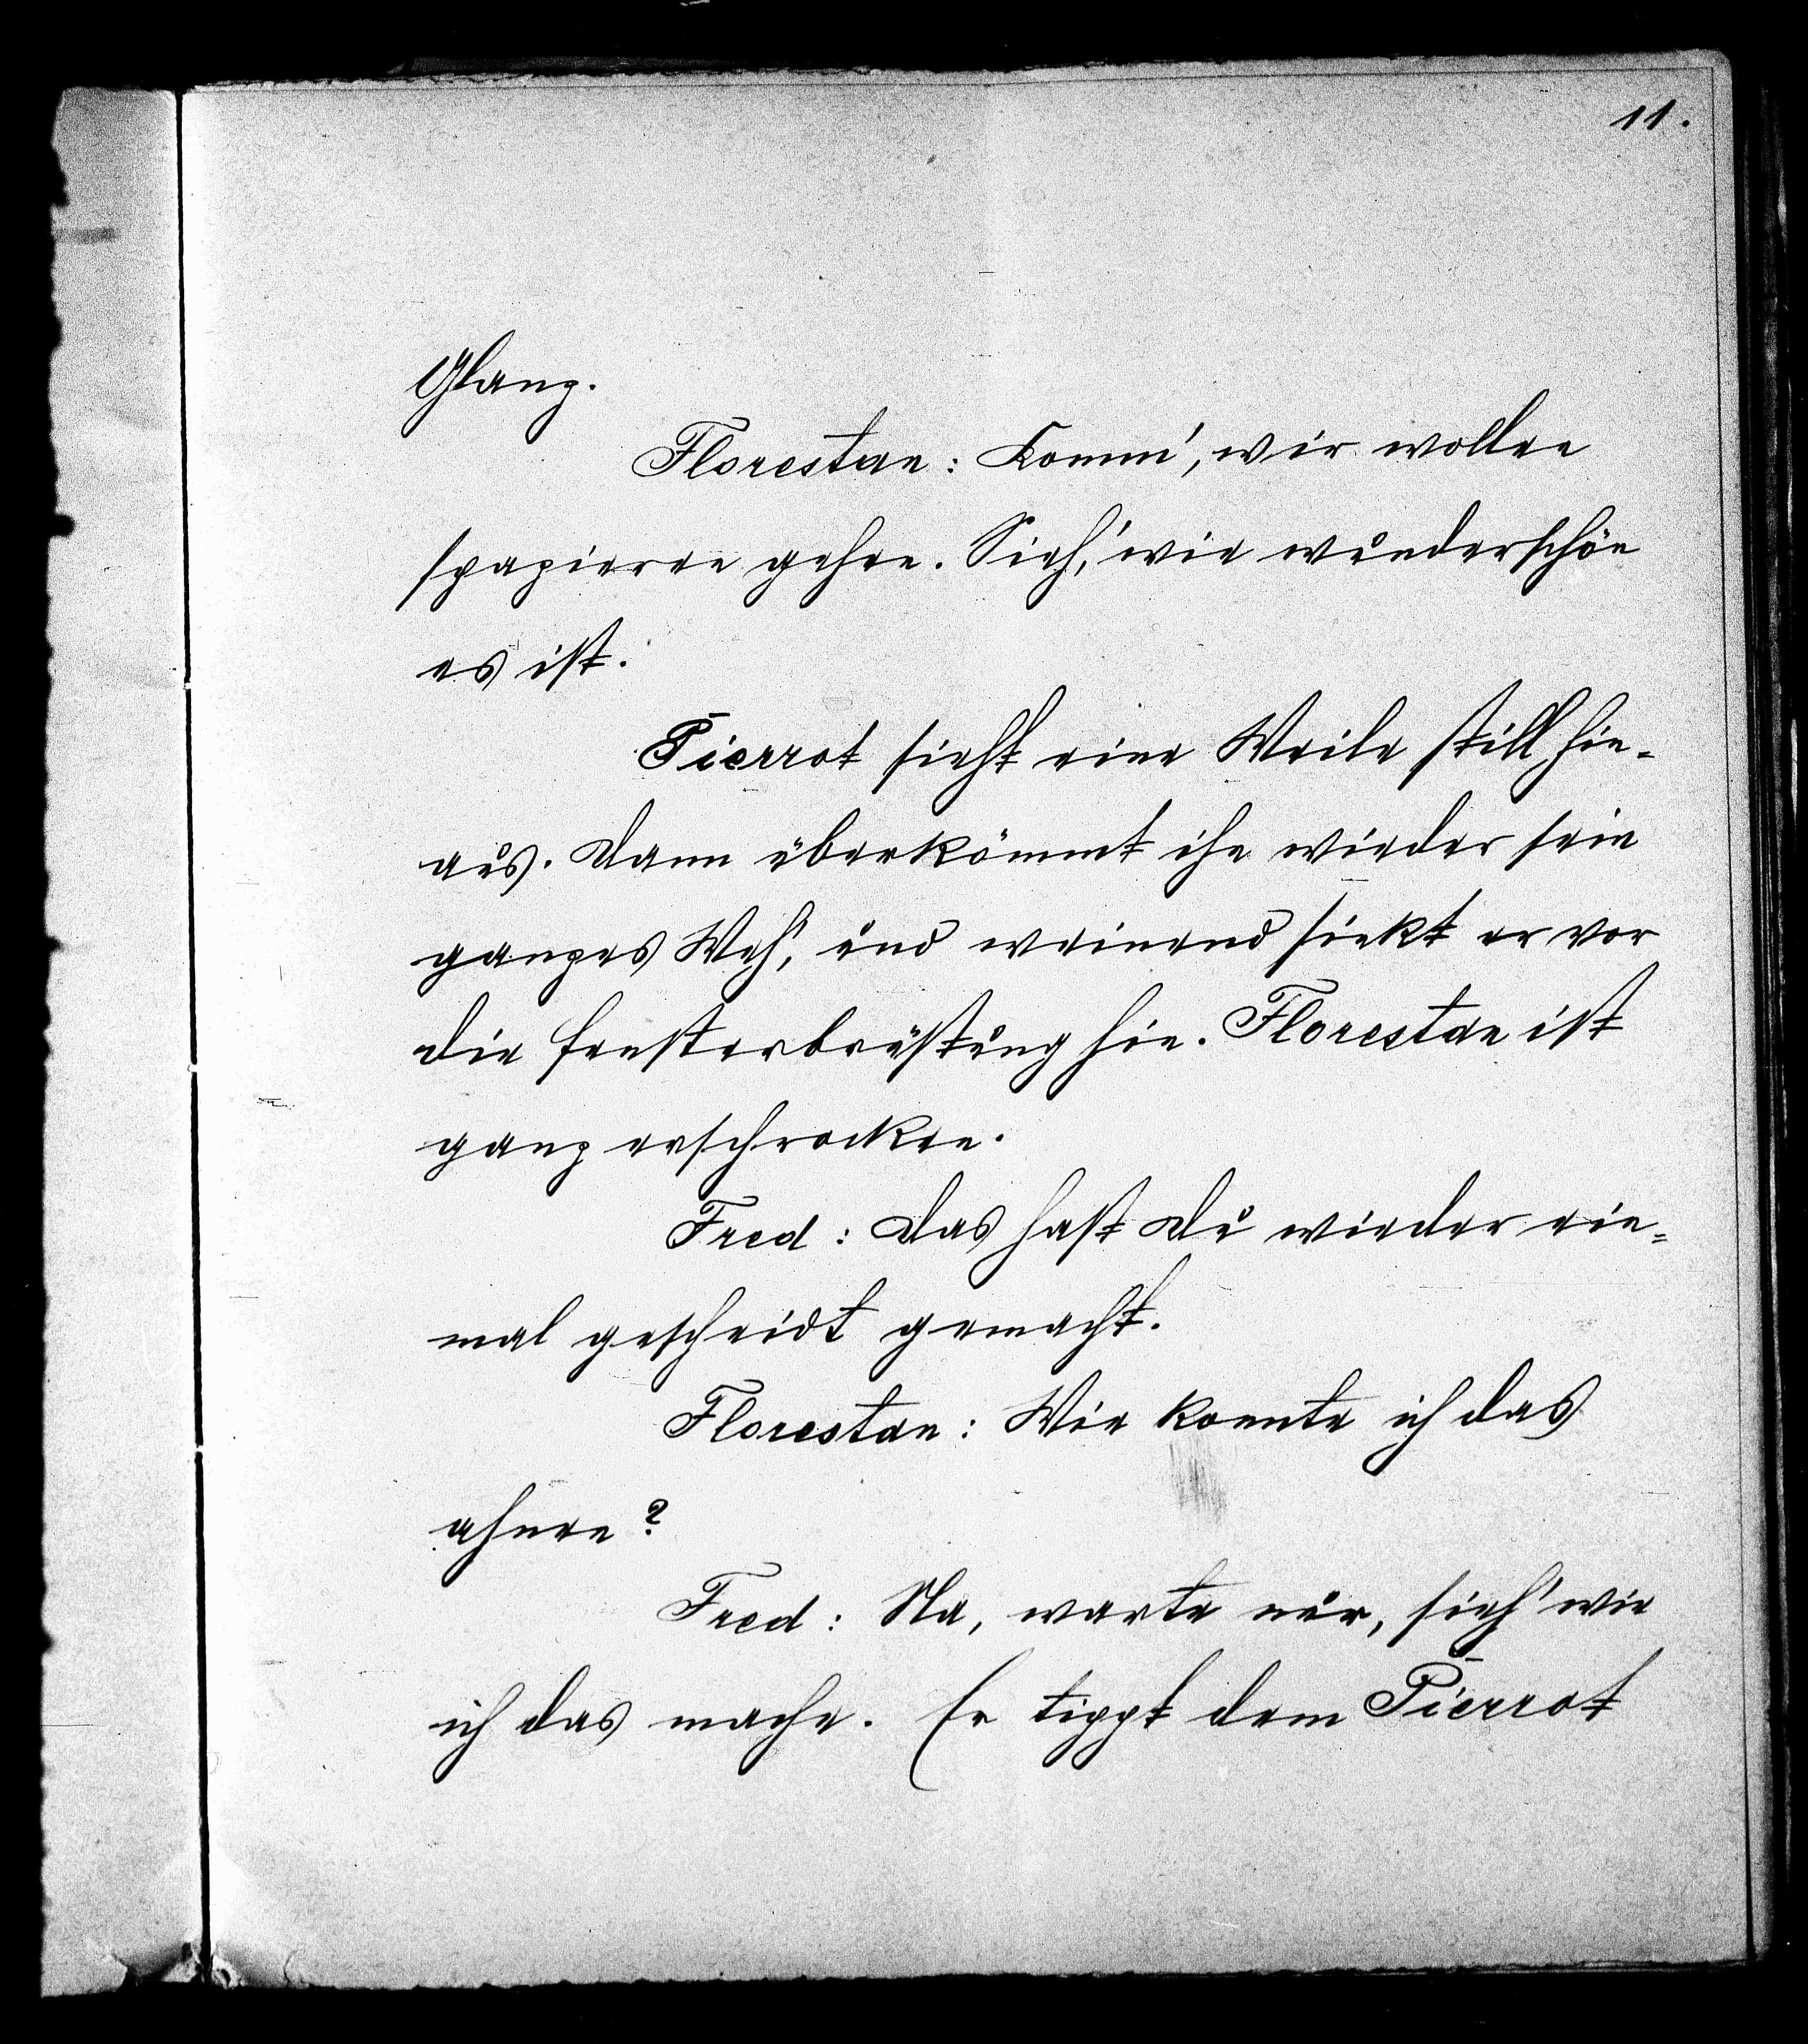 11.
Glanz.
Florestan: Komm', wir wollen
spazieren gehen. Sieh', wie wunderschön
es ist.
Pierrot sieht eine Weile still hin-
aus. Dann überkömmt ihn wieder sein
ganzes Weh', und weinend sinkt er vor
die Fensterbrüstung hin. Florestan ist
ganz erschrocken.
Fred: Das hast Du wieder ein-
mal gescheidt gemacht.
Florestan: Wie konnte ich das
ahnen?
Fred: Na, warte nur, sieh' wie
ich das mache. Er tippt dem Pierrot